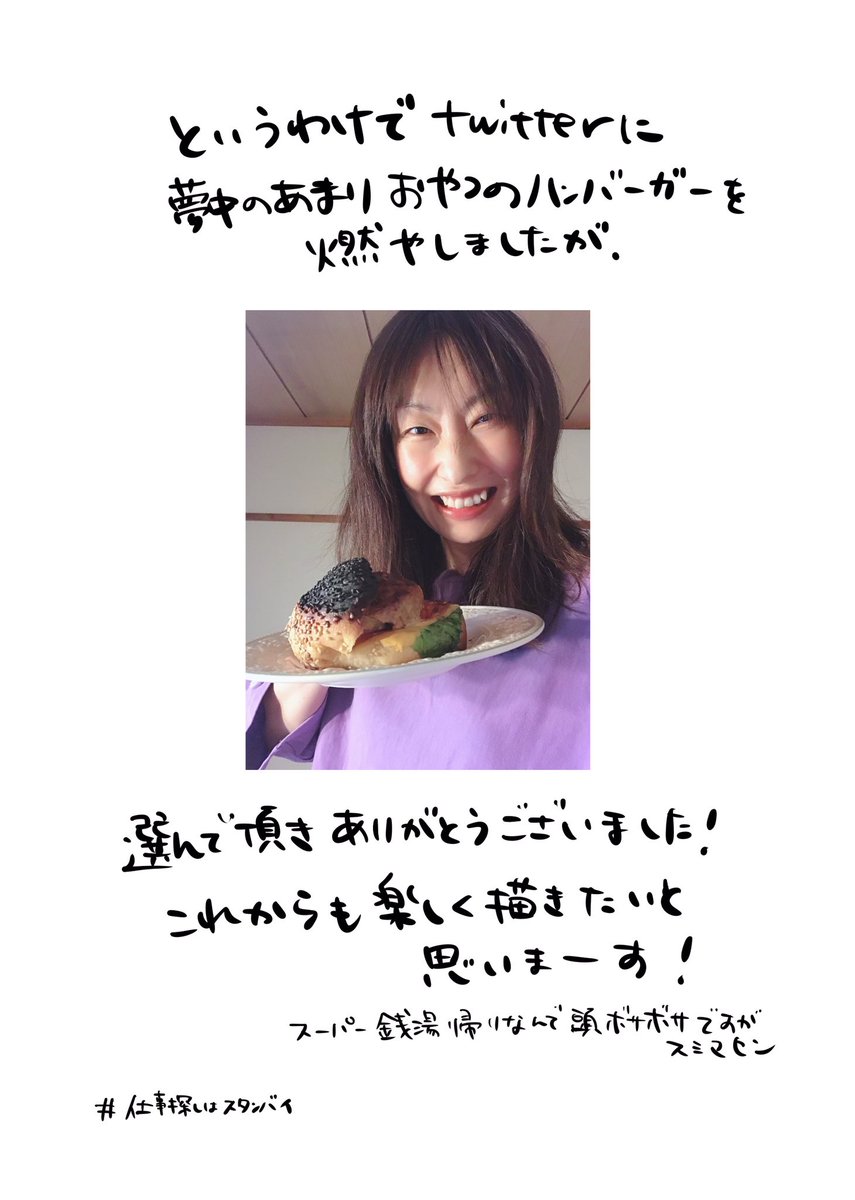 というわけでtwitterに
夢中のあまりおやつのハンバーガーを
燃やしましたが、
選んで頂きありがとうございました!
これからも楽しく描きたいと
思いまーす!
スーパー銭湯帰りなんで頭ボサボサですが
スミマセン
#仕事探しはスタンバイ